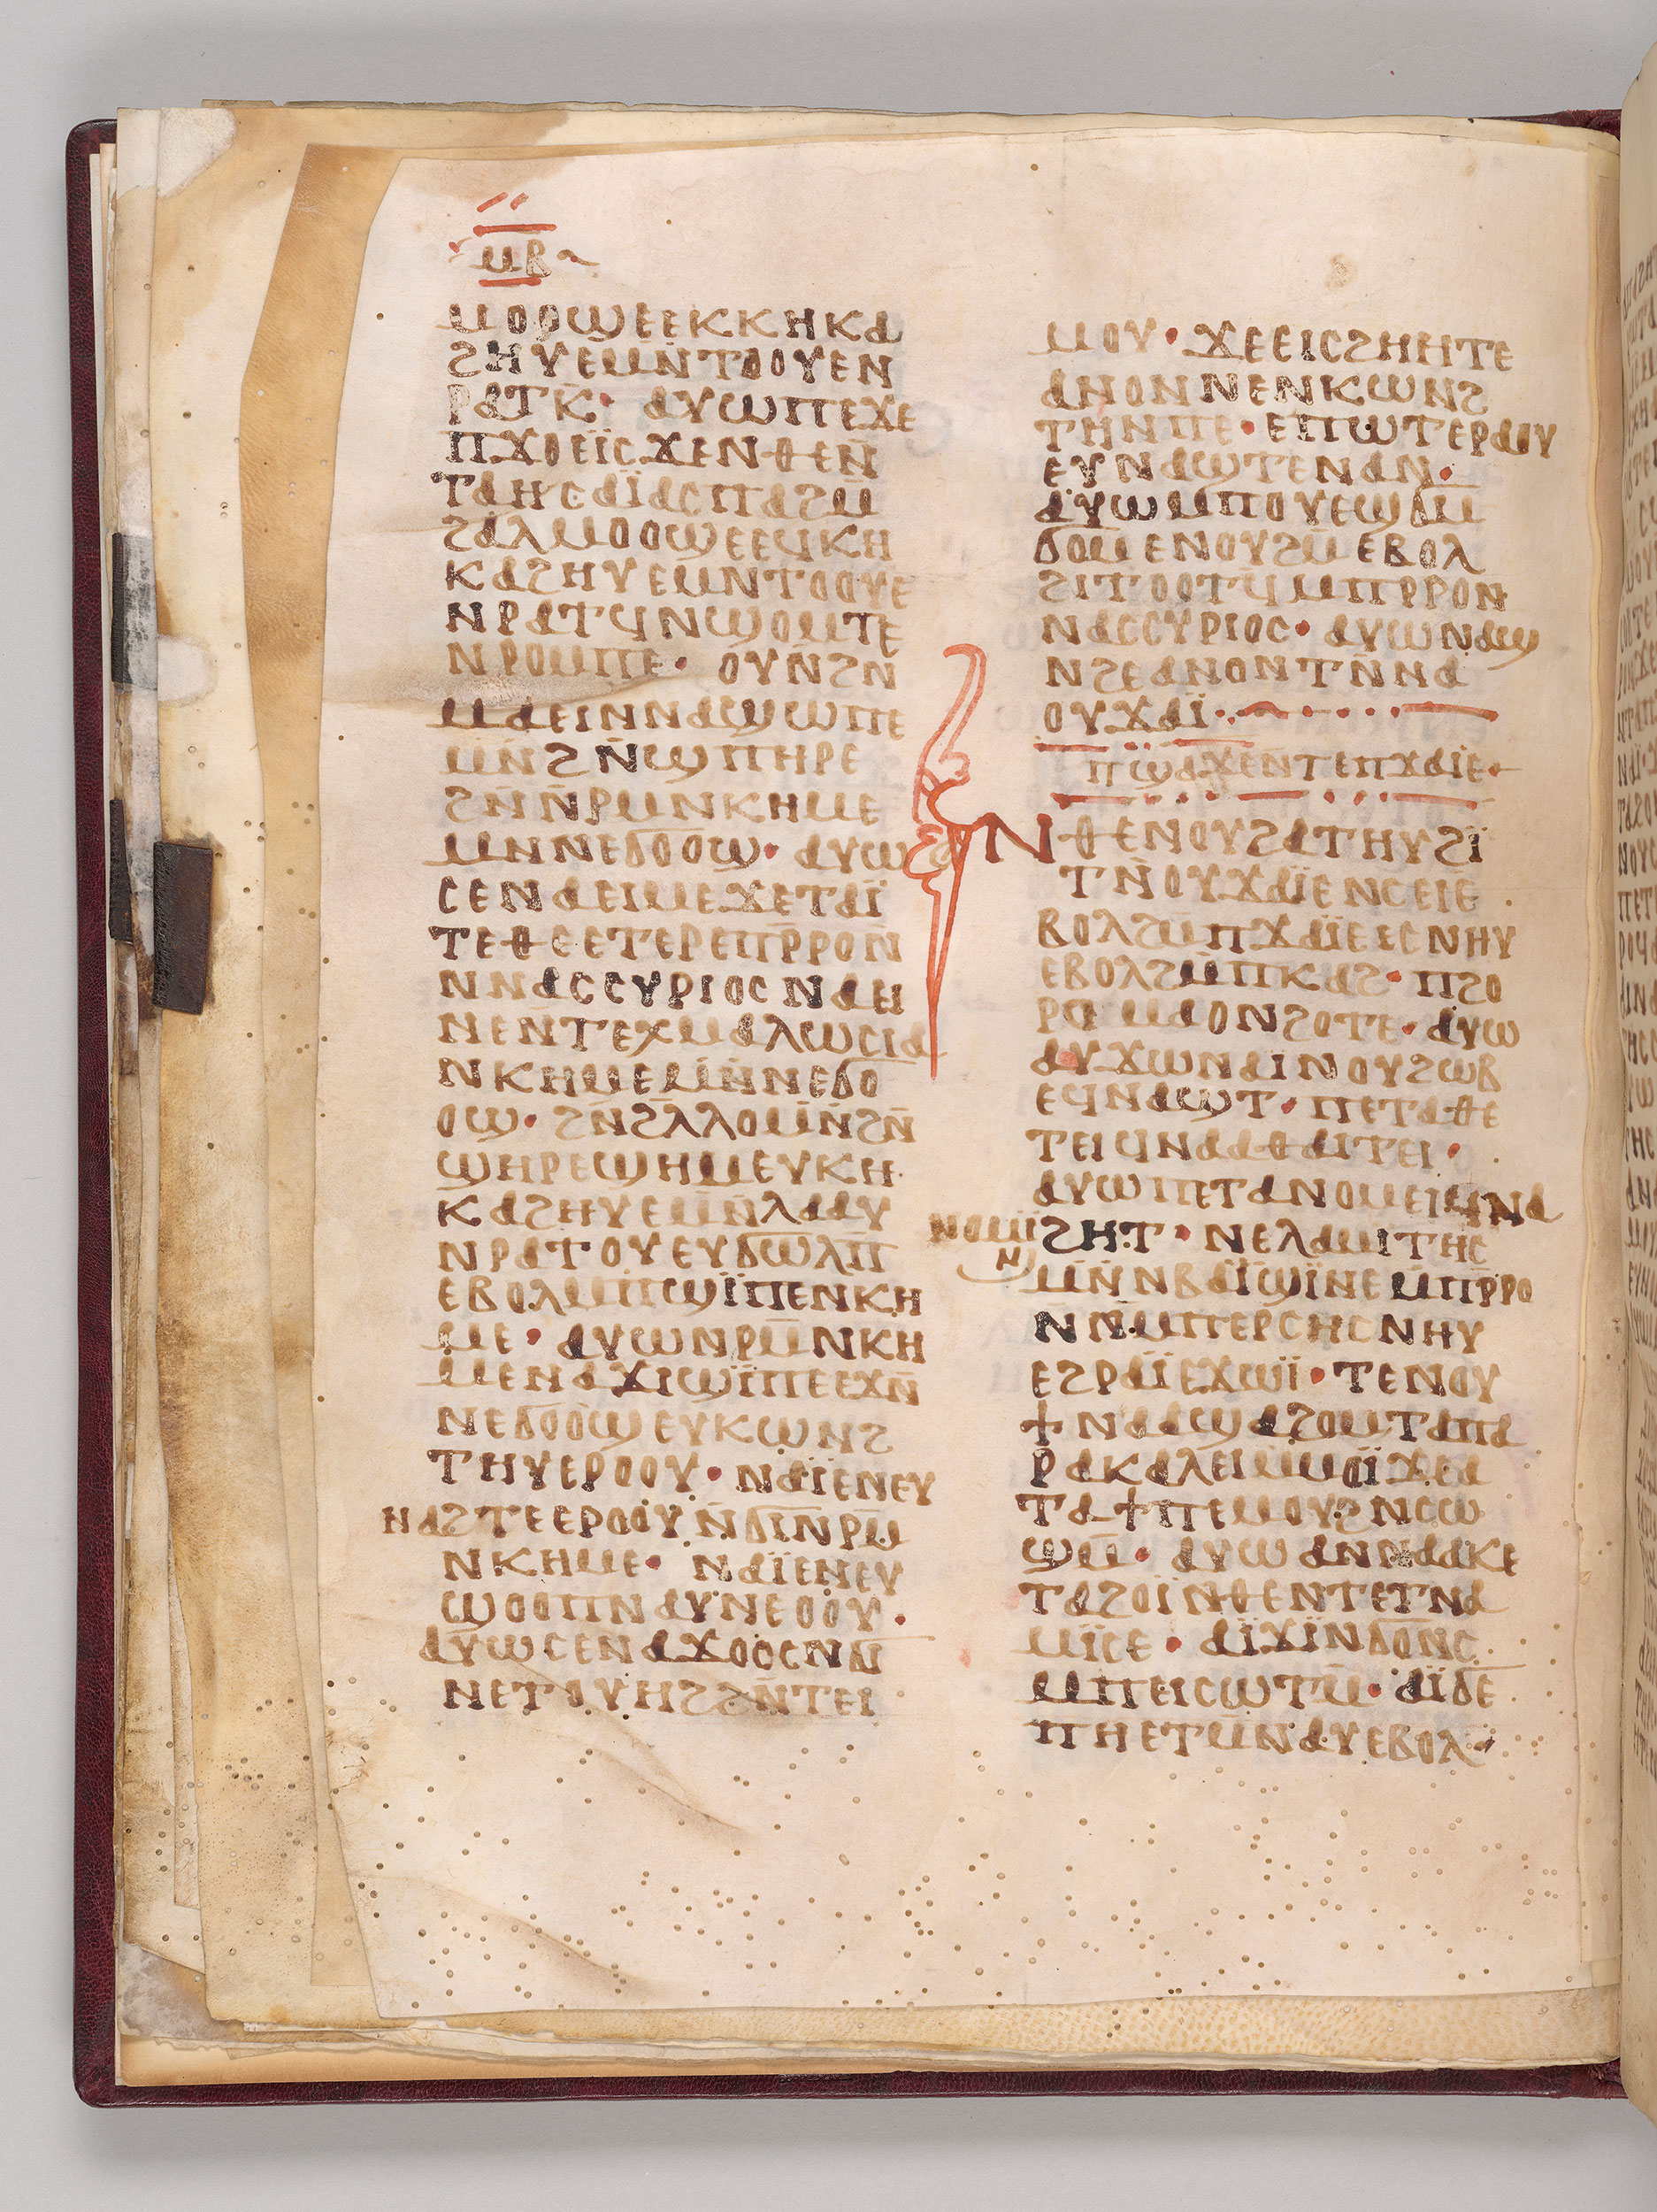 ⲙⲃ
ⲙⲟⲟϣⲉⲉⲕⲕⲏⲕⲁ
ϩⲏⲩⲉⲙⲛ̄ⲧⲟⲟⲩⲉⲛ
ⲣⲁⲧⲕ̄· ⲁⲩⲱⲡⲉϫⲉ
ⲡϫⲟⲉⲓ̈ⲥϫⲉⲛⲑⲉⲛ̄
ⲧⲁⲏⲥⲁⲓ̈ⲁⲥⲡⲁϩⲙ̄
ϩⲁⲗⲙⲟⲟϣⲉⲉϥⲕⲏ
ⲕⲁϩⲏⲩⲉⲙⲛⲧⲟⲟⲩⲉ
ⲛⲣⲁⲧϥⲛϣⲟⲙⲧⲉ
ⲛⲣⲟⲙⲡⲉ· ⲟⲩⲛ̄ϩⲛ
ⲙⲁⲉⲓⲛⲛⲁϣⲱⲡⲉ
ⲙⲛ̄ϩⲛ̄ϣⲡⲏⲣⲉ
ϩⲛ̄ⲛ̄ⲣⲙⲛⲕⲏⲙⲉ
ⲙⲛⲛⲉϭⲟⲟϣ· ⲁⲩⲱ
ⲥⲉⲛⲁⲉⲓⲙⲉϫⲉⲧⲁⲓ̈
ⲧⲉⲑⲉⲉⲧⲉⲣⲉⲡⲣ̄ⲣⲟⲛ̄
ⲛⲛⲁⲥⲥⲩⲣⲓⲟⲥⲛⲁⲉⲓ
ⲛⲉⲛ̄ⲧⲉⲭⲙⲁⲗⲱⲥⲓⲁ
ⲛⲕⲏⲙⲉⲙⲛ̄ⲛⲉϭⲟ
ⲟϣ· ϩⲛϩⲗ̄ⲗⲟⲙⲛ̄ϩⲛ̄
ϣⲏⲣⲉϣⲏⲙⲉⲩⲕⲏ
ⲕⲁϩⲏⲩⲉⲙⲛ̄ⲗⲁⲁⲩ
ⲛⲣⲁⲧⲟⲩⲉⲩϭⲱⲗⲡ̄
ⲉⲃⲟⲗⲙⲡϣⲓ̈ⲡⲉⲛⲕⲏ
ⲙⲉ· ⲁⲩⲱⲛⲣⲙ̄ⲛⲕⲏ
ⲙⲉⲛⲁϫⲓϣⲓ̈ⲡⲉⲉϫⲛ̄
ⲛⲉϭⲟⲟϣⲉⲩⲕⲱⲛϩ
ⲧⲏⲩⲉⲣⲟⲟⲩ· ⲛⲁⲓ̈ⲉⲛⲉⲩ
ⲛⲁϩⲧⲉⲉⲣⲟⲟⲩⲛ̄ϭⲓⲛⲣⲙ
ⲛⲕⲏⲙⲉ· ⲛⲁⲓ̈ⲉⲛⲉⲩ
ϣⲟⲟⲡⲛⲁⲩⲛⲉⲟⲟⲩ·
ⲁⲩⲱⲥⲉⲛⲁϫⲟⲟⲥⲛϭⲓ
ⲛⲉⲧⲟⲩⲏϩϩⲛ̄ⲧⲉⲓ
ⲙⲟⲩ· ϫⲉⲉⲓⲥϩⲏⲏⲧⲉ
ⲁⲛⲟⲛⲛⲉⲛⲕⲱⲛϩ
ⲧⲏⲛⲡⲉ· ⲉⲡⲱⲧⲉⲣⲁⲟⲩ
ⲉⲩⲛⲁϣⲧⲉⲛⲁⲛ·
ⲁⲩⲱⲙⲡⲟⲩⲉϣϭⲙ̄
ϭⲟⲙⲉⲛⲟⲩϩⲙ̄ⲉⲃⲟⲗ
ϩⲓⲧⲟⲟⲧϥⲙⲡⲣⲣⲟⲛ
ⲛⲁⲥⲥⲩⲣⲓⲟⲥ· ⲁⲩⲱⲛⲁϣ
ⲛϩⲉⲁⲛⲟⲛⲧⲛ̄ⲛⲁ
ⲟⲩϫⲁⲓ̈·
ⲡϣⲁϫⲉⲛ̄ⲧⲉⲡϫⲁⲓ̈ⲉ·
ⲛⲑⲉⲛⲟⲩϩⲁⲧⲏⲩϩⲓ̈
ⲧⲛ̄ⲟⲩϫⲁⲓ̈ⲉⲛⲥⲉⲓⲉ
ⲃⲟⲗϩⲙ̄ⲡϫⲁⲓ̈ⲉⲉⲥⲛⲏⲩ
ⲉⲃⲟⲗϩⲙ̄ⲡⲕⲁϩ· ⲡϩⲟ
ⲣⲟⲙⲁⲟⲛϩⲟⲧⲉ· ⲁⲩⲱ
ⲁⲩϫⲱⲛⲁⲓⲛⲟⲩϩⲱⲃ
ⲉϥⲛⲁϣⲧ· ⲡⲉⲧⲁⲑⲉ
ⲧⲉⲓϥⲛⲁⲁⲑⲁⲓⲧⲉⲓ·
ⲁⲩⲱⲡⲉⲧⲁⲛⲟⲙⲉⲓϥⲛⲁ
ⲛⲟⲙⲓ̈
ⲛ
ϩⲏⲧ· ⲛⲉⲗⲁⲙⲓⲧⲏⲥ
ⲙⲛ̄ⲛⲃⲁⲓ̈ϣⲓ̈ⲛⲉⲙ̄ⲡⲣ̄ⲣⲟ
ⲛⲙ̄ⲡⲉⲣⲥⲏⲥⲛⲏⲩ
ⲉϩⲣⲁⲓ̈ⲉϫⲱⲓ̈· ⲧⲉⲛⲟⲩ
ϯⲛⲁⲁϣⲁϩⲟⲙⲧⲁⲡⲁ
ⲣⲁⲕⲁⲗⲉⲓⲙⲙⲟⲓ̈ϫⲉⲁ
ⲧⲁϯⲡⲉⲙⲟⲩϩⲛⲥⲱ
ϣⲙ̄· ⲁⲩⲱⲁⲛⲛⲁⲁⲕⲉ
ⲧⲁϩⲟⲓ̈ⲛⲑⲉⲛⲧⲉⲧⲛⲁ
ⲙⲓ̈ⲥⲉ· ⲁⲓ̈ϫⲓ̈ⲛϭⲟⲛⲥ
ⲙⲡⲉⲓⲥⲱⲧⲙ̄· ⲁⲓ̈ϭⲉ
ⲡⲏⲉⲧⲙ̄ⲛⲁⲩⲉⲃⲟⲗ